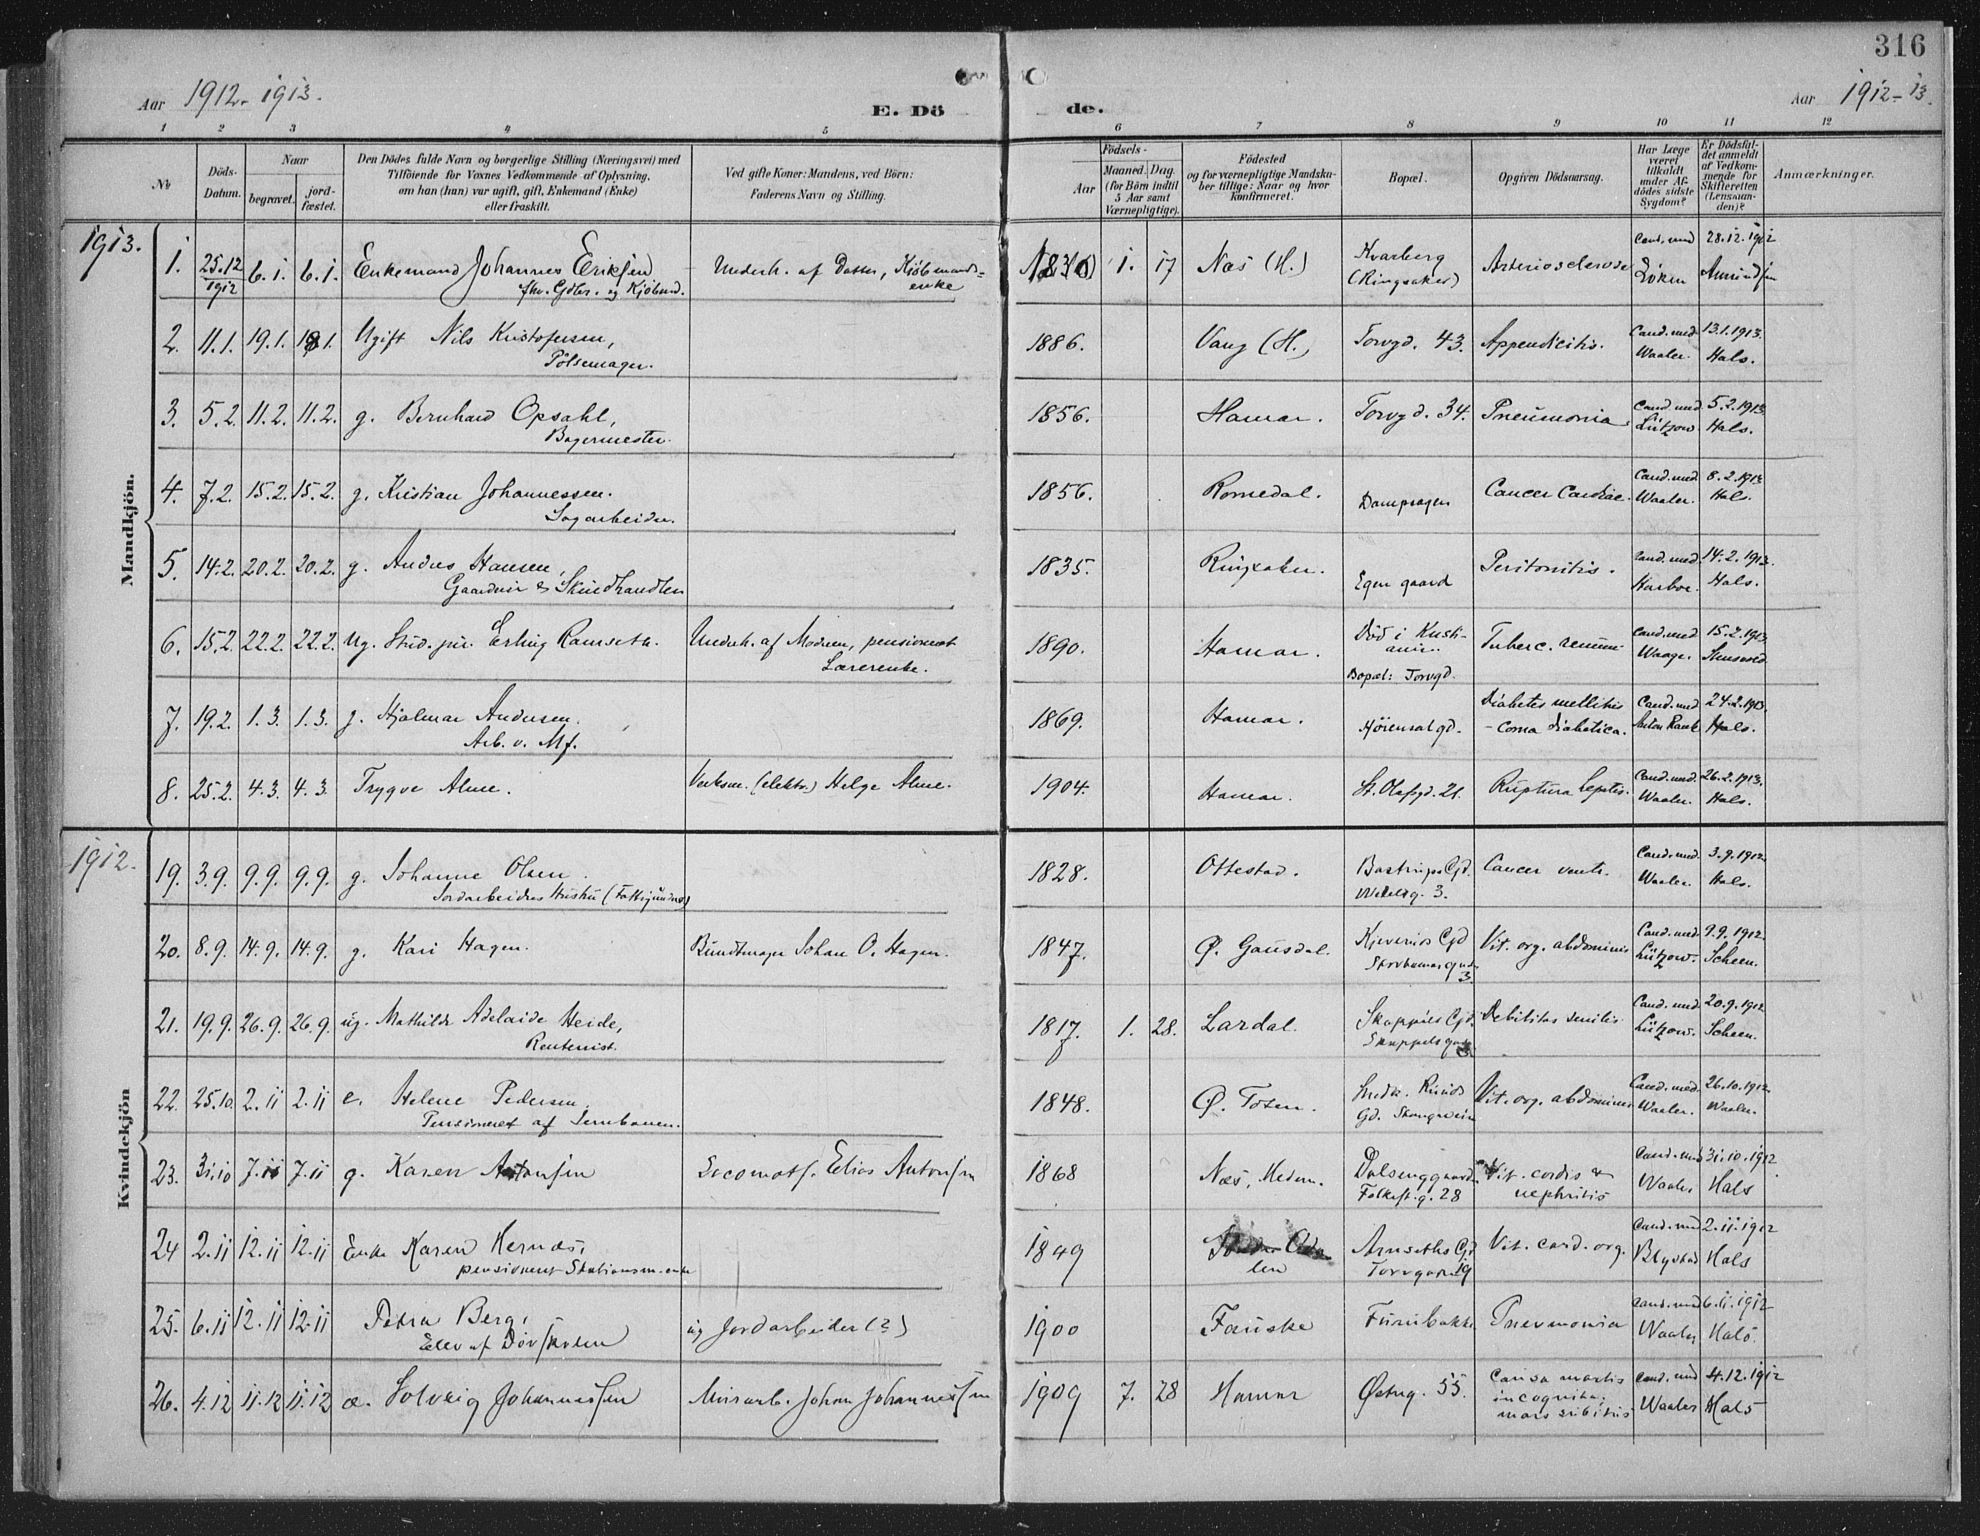 316
Aar 1912-1913.
E. Dö
de.
Aar 1912-13.
1 2 3 4 5 6 7 8 9 10 11 12
№
Döds-
Datum.
Naar
begravet.
jord-
fæstet.
Den Dödes fulde Navn og borgerlige Stilling (Næringsvei) med
Tilföiende for Voxnes Vedkommende af Oplysning,
om han (hun) var ugift, gift, Enkemand (Enke)
eller fraskilt.
Ved gifte Koner: Mandens, ved Börn:
Faderens Navn og Stilling.
Födsels-
Aar
Maaned. Dag.
(for Börn indtil
5 Aar samt
Værnepligtige).
Födested
og for værnepligtige Mandska-
ber tillige: Naar og hvor
konfirmeret.
Bopæl.
Opgiven Dödsaarsag.
Har Læge
været
tilkaldt
under Af-
dödes sidste
Sygdom?
Er Dödsfal-
det anmeldt
af Vedkom-
mende for
Skifteretten
(Lensman-
den)?
Anmærkninger.
Mandkjön.
1913.
1. 25.12 1912 6.1. 6.1. Enkemand Johannes Eriksen Underh. af Datter, Kjöbmands-
fhv. Gdbr. og Kjöbmd. enke
1. 17 Næs (H.) Kvarberg (Ringsaker) Arteriosclerose Cand. med Löken 28.12.1912
2. 11.1. 19.1. Ugift Nils Kristofersen, 1886. Vang (H.) Torvgd. 43. Appendicitis. Cand. med Waaler. 13.1.1913. Hals.
Pölsemager.
3. 5.2. 11.2. 11.2. g. Bernhard Opsahl, 1856. Hamar. Torvgd. 34. Pneumonia Cand. med Lützow 5.2.1913 Hals.
Bagermester.
4. 7.2. 15.2. 15.2. g. Kristian Johannessen. 1856. Romedal. Dampsagen Cancer Cardiae. Cand. med Waaler. 8.2.1913 Hals.
Sagarbeider.
5. 14.2. 20.2. 20.2. g. Anders Hansen, 1835. Ringsaker. Egen gaard Peritonitis. Cand. med. 14.2.1913. Hals.
Gaardeier & Skindhandler
6. 15.2. 22.2. 22.2. Ug. Stud. jur. Erling Ramseth. Underh. af Modren, pensioneret
Lærerenke.
1890. Hamar. Död i Kristi-
ania.
Bopæl: Torvgd.
Tuberc. renum Cand. med Waage. 15.2.1913
7. 19.2. 1.3. 1.3. g. Hjalmar Andersen. 1869. Hamar. Diabetes mellitus
- coma diabetica. Cand. med 24.2.1913. Hals.
Arb. v. Mf.
8. 25.2. 4.3. 4.3. Trygve Alme. (elektr.) Helge Alme. 1904. Hamar. St. Olafsgd. 21. Ruptura hepatis. Cand. med. Waaler. 26.2.1913. Hals.
Kvindekjön
1912.
19. 3.9. 9.9. 9.9. g. Johanne Olsen. 1828. Ottestad. Bastrups Gd. 3. Cancer ventr. Cand. med. Waaler. 3.9.1912. Hals.
Jordarbeiders Hustru
20. 8.9. 14.9. 14.9. g. Kari Hagen. Bundtmager Johan O. Hagen. 1847. Ø. Gausdal. 3. Vit. org. abdominis Cand. med Lützow. 9.9.1912. Scheen.
21. 19.9. 26.9. 26.9. ug. Mathilde Adelaide Heide, 1817. 1. 28. Lardal. Skappels Gd. Debilitas senilis Cand. med Lützow. 20.9.1912 Scheen.
Rentenist.
22. 25.10. 2.11 2.11 e. Helene Pedersen 1848. Ø. Toten. Vit. org. abdominis Cand. med. Waaler. 26.10.1912 Waaler.
Pensioneret af Jernbanen.
23. 31.10 7.11 7.11 g. Karen Antonsen Locomotf. Elias Antonsen 1868 Næs, Hedem. Dalsenggaarden
Folkest.g. 28 Vit. cordis &
nephritis Cand. med Waaler 31.10.1912 Hals
24 2.11 12.11 12.11 Enke Karen Hernæs, 1849 Arnseths Gd.
Torvgaden 19 Vit. card. org. Cand. med Blystad 2.11.1912 Hals
pensioneret Stationsm. enke
25. 6.11 12.11 12.11 Petra Berg, ug Jordarbeider (?) 1900 Fauske Furubakke Pnevmonia Cand. med Waaler 6.11.1912 Hals.
Elev af Døvskolen
26. 4.12 11.12 11.12 æ. Solveig Johannessen Murarb. Johan Johannessen 1909 7. 28 Hamar Østreg. 55. Causa mortis
incognita.
mors subitus Cand. med Waaler 4.12.1912 Hals